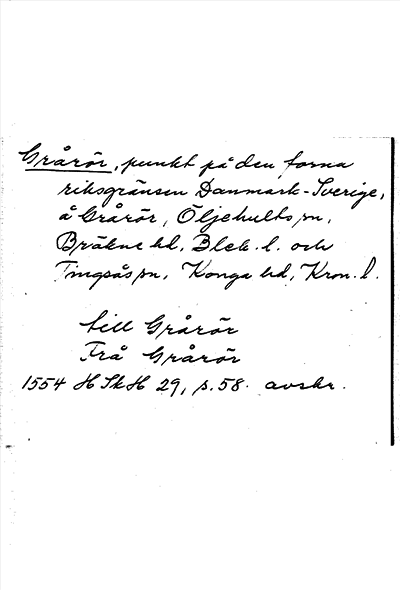 Grårör, punkt på den forna
riksgränsen Danmark-Sverige,
å Grårör, Öljehults sn,
Bräkne hd, Blek. l. och
Tingsås sn, Konga hd, Kron. l.
till Grårör
Frå Grårör
1554 HSkH 29, s. 58. avskr.